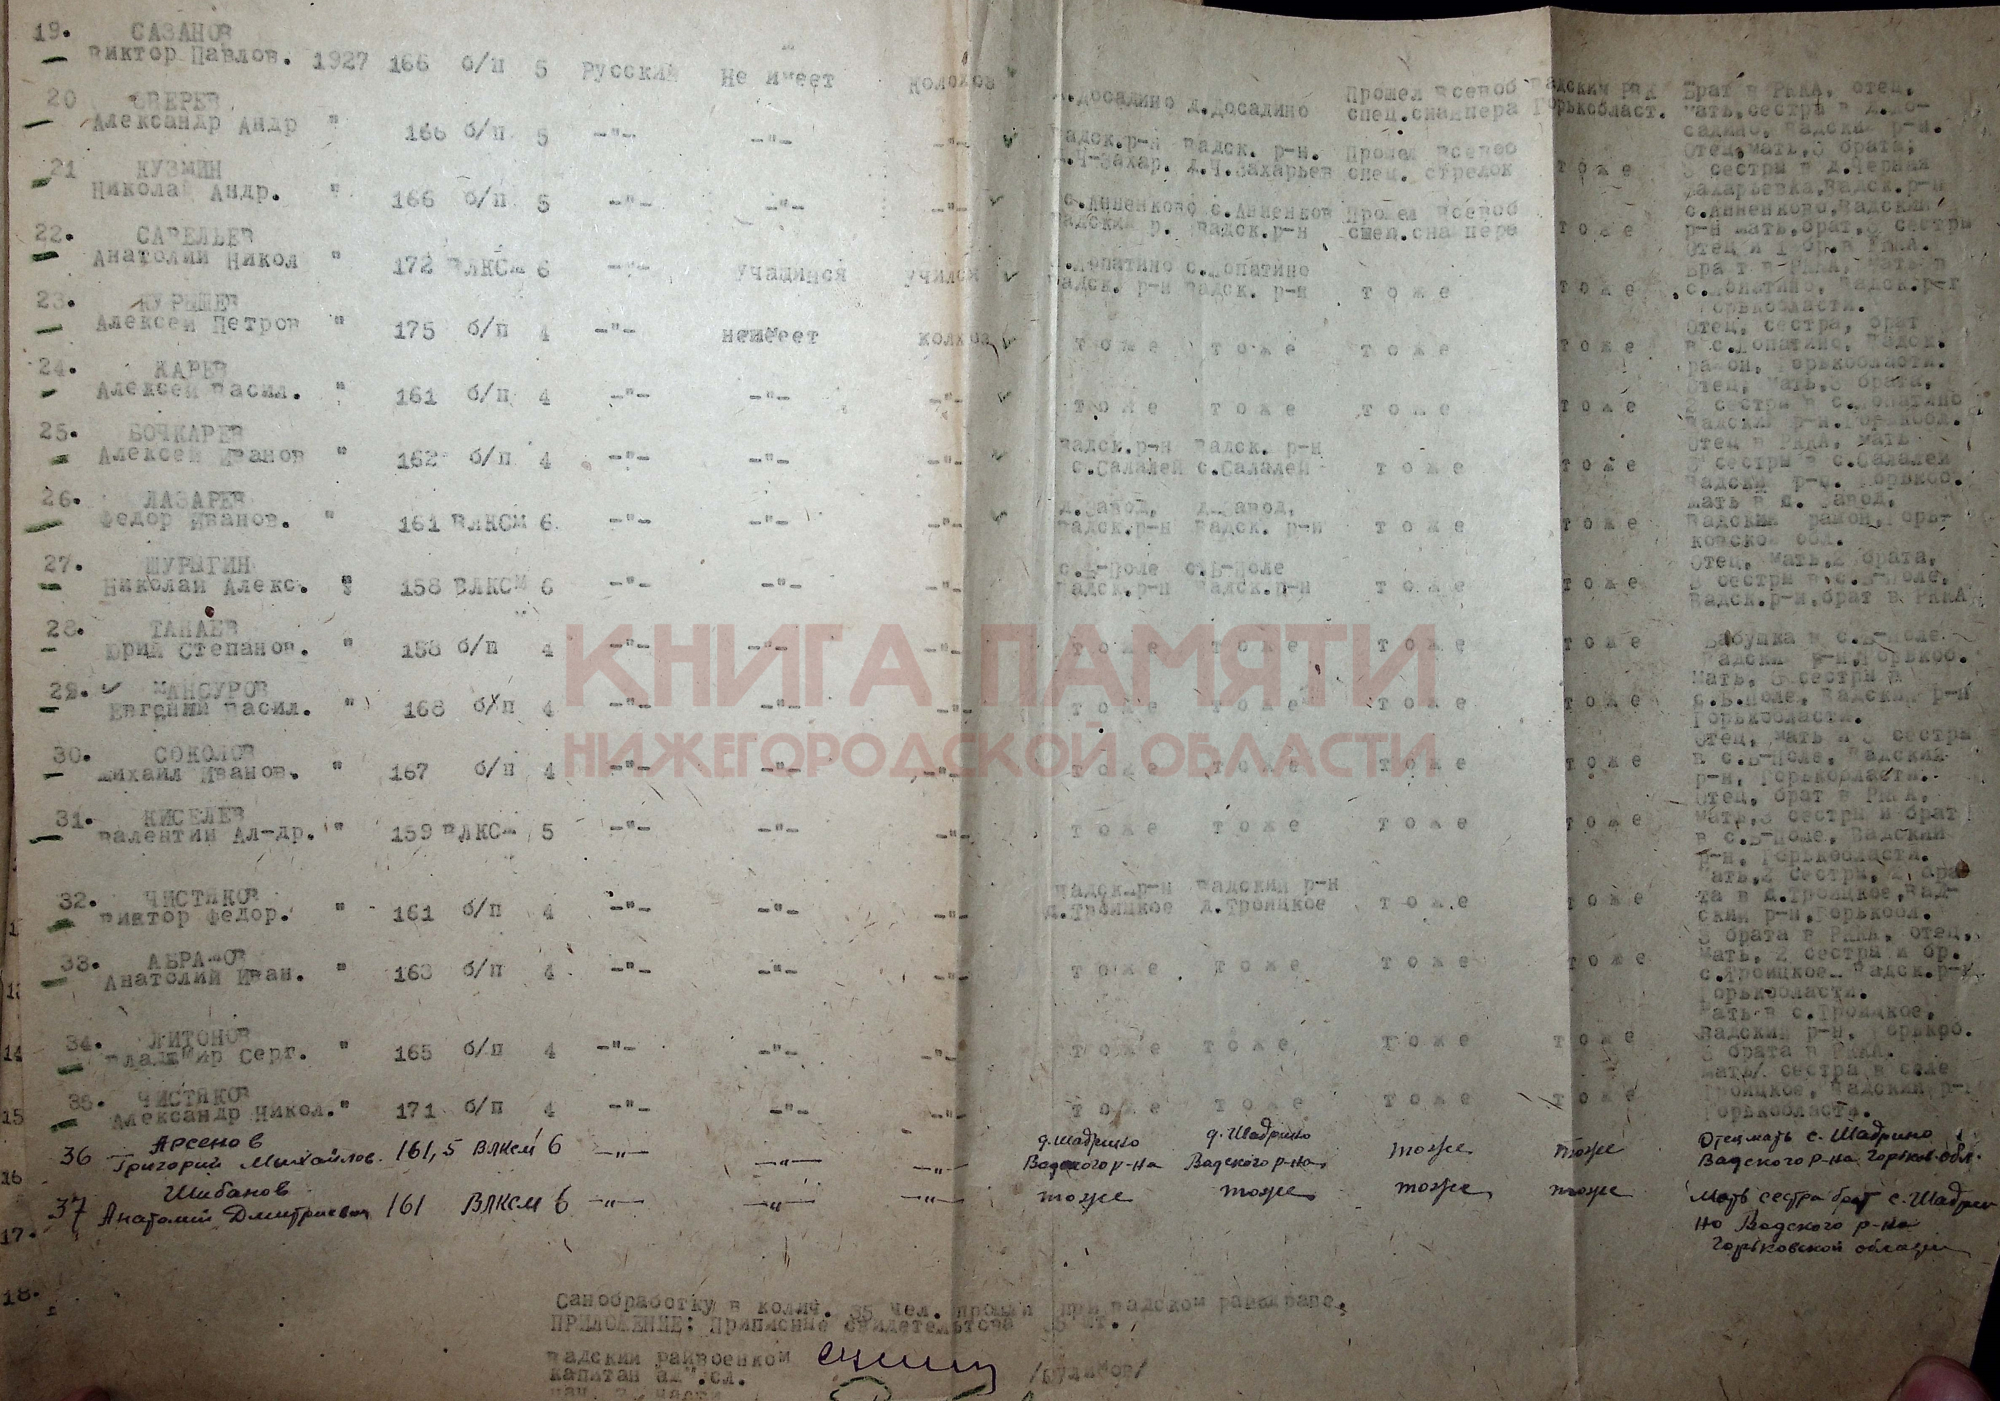 19. САЗАНОВ
Виктор Павлов. 1927 166 б/п 5 Русский Не имеет колохов д.Досадино д.Досадино Прошел всевоб Вадским РВК Брат в РККА, отец,
спец.снайпера Горькобласт. мать,сестра в д.До-
садино, Вадский р-н.
20 ЗВЕРЕВ
Александр Андр " 166 б/п 5 -"- -"- -"- Вадск.р-н Вадск. р-н. Прошел всевоб Отец,мать,3 брата,
д.Ч-Захар. д.Ч.Захарьев спец. стрелок т о ж е 3 сестры в д.Черная
Захарьевка,Вадск.р-н
21 КУЗМИН
Николай Андр. " 166 б/п 5 -"- -"- -"- с.Анненково с.Анненков Прошел всевоб с.Анненково,Вадский
Вадский р. Вадск.р-н спец.снайпера т о ж е р-н мать,брат,3 сестры
Отец и 1 бр.в РККА.
22. САВЕЛЬЕВ
Анатолий Никол " 172 ВЛКСМ 6 -"- учащийся учился с.Лопатино с.Лопатино Брат в РККА, мать в
Вадск. р-н Вадск. р-н т о ж е т о ж е с.Лопатино, Вадск.р-г
Горькобласти.
23. КУРЫШЕВ
Алексей Петров " 175 б/п 4 -"- неимеет колхоз т о ж е т о ж е т о ж е т о ж е Отец, сестра, брат
в с.Лопатино, Вадск.
район, Горькобласти.
24. КАРЕВ
Алексей Васил. " 161 б/п 4 -"- -"- -"- т о ж е т о ж е т о ж е т о ж е Отец, мать,3 брата,
2 сестры в с.Лопатино
Вадский р-н.Горькобл.
25. БОЧКАРЕВ
Алексей Иванов " 162 б/п 4 -"- -"- -"- Вадск.р-н Вадск. р-н Отец в РККА, мать
с.Салалей с.Салалей т о ж е т о ж е 3 сестры в с.Салалей
Вадский р-н. Горькоб.
26. ЛАЗАРЕВ
Федор Иванов. " 161 ВЛКСМ 6 -"- -"- -"- д.Завод, д.Завод, Мать в д. Завод,
Вадск.р-н Вадск. р-н т о ж е т о ж е Вадский район,Горь-
ковской обл.
27. ШУРЫГИН
Николай Алекс. " 158 ВЛКСМ 6 -"- -"- -"- с.В-Поле с.В-Поле Отец, мать,2 брата,
Вадск.р-н Вадск.р-н т о ж е т о ж е 3 сестры в с.В-Поле,
Вадск.р-н,брат в РККА
28. ТАНАЕВ
Юрий Степанов. " 158 б/п 4 -"- -"- -"- т о ж е т о ж е т о ж е т о ж е Бабушка в с.В-Поле
Вадский р-н,Горькоб.
29. МАНСУРОВ
Евгений Васил. " 168 б/п 4 -"- -"- -"- т о ж е т о ж е т о ж е т о ж е Мать, 3 сестры в
с.В.Поле, Вадский р-н
Горькобласти.
30. СОКОЛОВ
Михаил Иванов. " 167 б/п 4 -"- -"- -"- т о ж е т о ж е т о ж е т о ж е Отец, мать и 3 сестры
в с.В-Поле, Вадский
р-н, Горькобласти.
31. КИСЕЛЕВ
Валентин Ал-др. " 159 ВЛКСМ 5 -"- -"- -"- т о ж е т о ж е т о ж е т о ж е Отец, брат в РККА,
мать,3 сестры и брат
в с.В-Поле, Вадский
р-н, Горькобласти.
32. ЧИСТЯКОВ
Виктор Федор. " 161 б/п 4 -"- -"- -"- Вадск.р-н Вадский р-н Мать,2 сестры, 2 бра
д.Троицкое д.Троицкое т о ж е т о ж е та в д.Троицкое,Вад-
ский р-н,Горькобл.
33. АБРАМОВ
Анатолий Иван. " 163 б/п 4 -"- -"- -"- т о ж е т о ж е т о ж е т о ж е 3 брата в РККА, отец,
мать, 2 сестры и бр.
с.Троицкое Вадск.р-н
Горькобласти.
34. ЛИТОНОВ
Владимир Серг. " 165 б/п 4 -"- -"- -"- т о ж е т о ж е т о ж е т о ж е Мать в с.Троицкое,
Вадский р-н, Горькоб.
3 брата в РККА.
35. ЧИСТЯКОВ
Александр Никол." 171 б/п 4 -"- -"- -"- т о ж е т о ж е т о ж е т о ж е Мать/ сестра в селе
Троицкое, Вадский р-н
Горькобласти.
36 Арсенов
Григорий Михайлов. 161,5 ВЛКСМ 6 -"- -"- -"- д.Шадрино д.Шадрино тоже тоже Отец мать с. Шадрино
Вадского р-на Вадского р-на Вадского р-на Горьков. обл.
37 Шибанов
Анатолий Дмитриевич 161 ВЛКСМ 6 -"- -"- -"- тоже тоже тоже тоже Мать сестра брат с. Шадри
но Вадского р-на
Горьковской области
14
15
16
17.
18.
КНИГА ПАМЯТИ
НИЖЕГОРОДСКОЙ ОБЛАСТИ
Санобработку в колич. 35 чел. прошли при Вадском
ПРИЛОЖЕНИЕ: Приписные свидетельства шт.
Вадский райвоенком
капитан ад".сл.
нач. части